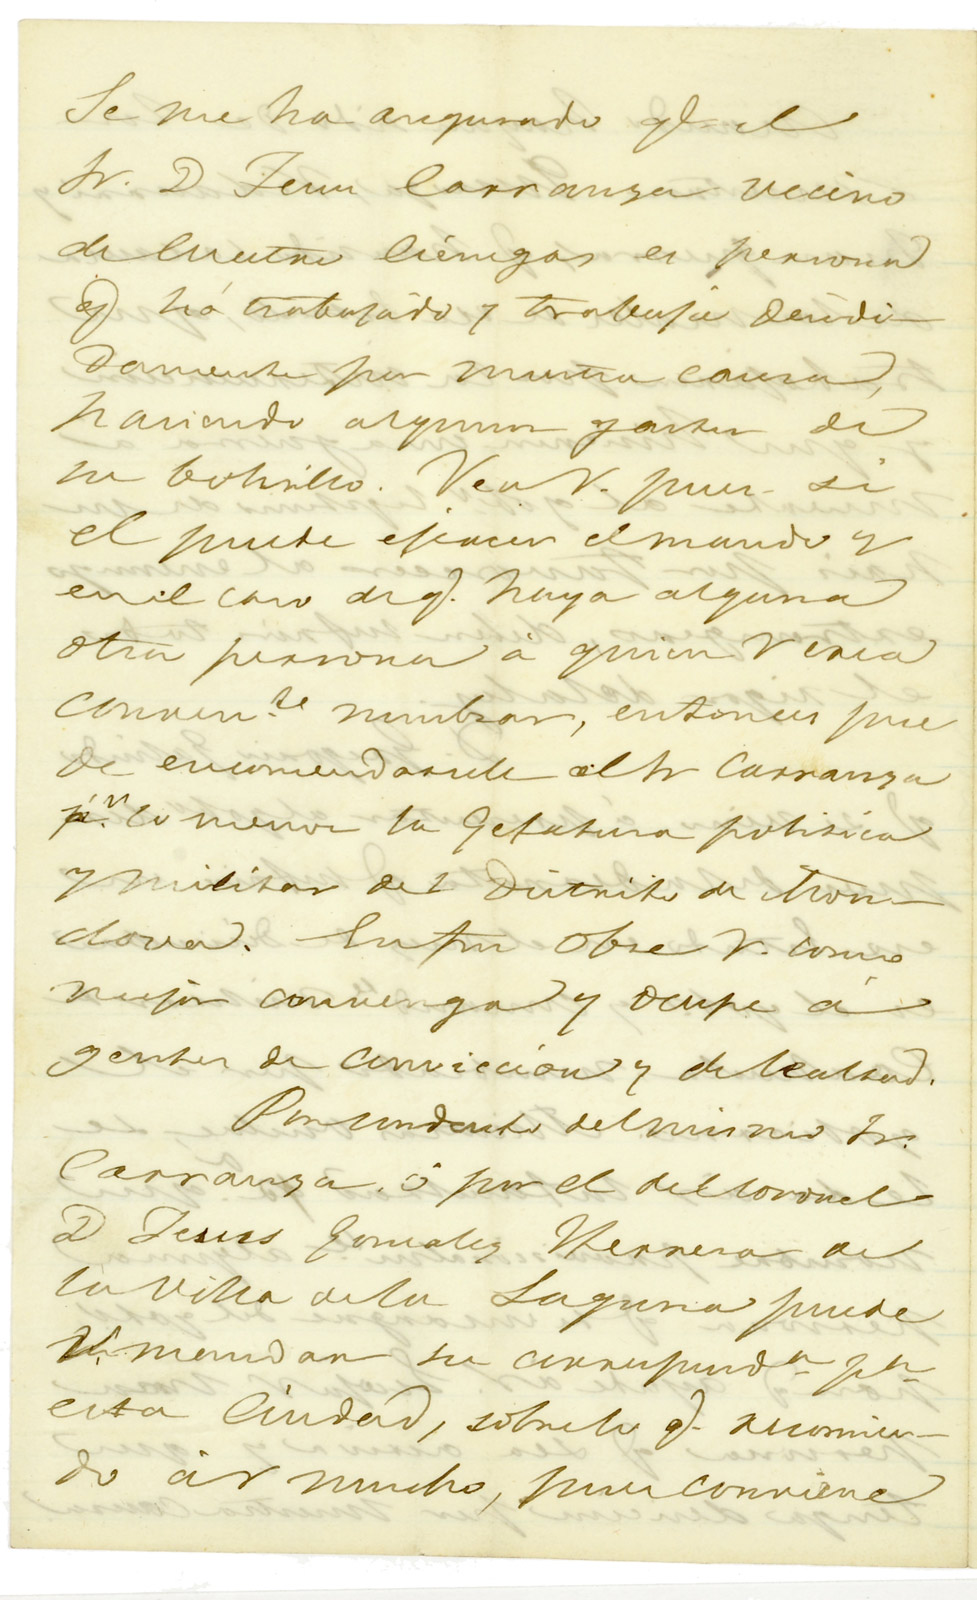 Se me ha asegurado q.e el
Sr. D Jesus Carranza vecino
de Cuatro Ciénegas es persona
q.e há trabajado y trabaja decidi-
damente por nuestra causa,
haciendo algunos gastos de
su bolsillo. Vea V. pues si
el puede ejercer el mando y
en el caso de q.e haya alguna
otra persona á quien V crea
conven.te nombrar, entonces pue
de encomendarsele al Sr Carranza
p.r lo menos la Gefatura politica
y militar del Distrito de Mon-
clova. En fin obre V. como
mejor convenga y ocupe á
gentes de conviccion y de lealtad.
Por conducto del mismo Sr.
Carranza, ó por el del Coronel
D Jesus Gonzalez Herrera de
la Villa de la Laguna puede
V. mandar su correspond.a p.a
esta Ciudad, sobre lo q.e recomien-
do á V mucho, pues conviene